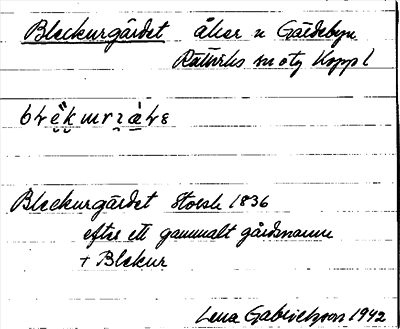 Bleckurgärdet åker n Gärdsbyn
Rättviks sn o tg Koppl
Bleckurgärdet Storsk 1836
efter ett gammalt gårdsnamn
+ Blekur
Lena Gabrielsson 1942